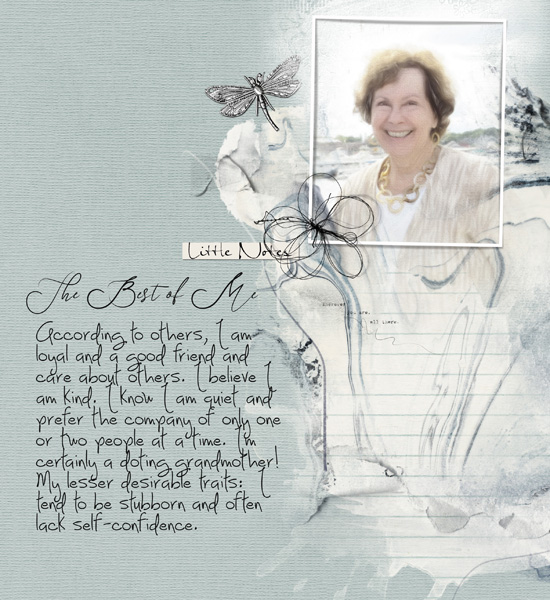 Little Notes
The Best of Me
According to others, I am
loyal and a good friend and
care about others. I believe I
am kind. I know I am quiet and
prefer the company of only one
or two people at a time. I'm
certainly a doting grandmother!
My lesser desirable traits: I
tend to be stubborn and often
lack self-confidence.
you are.